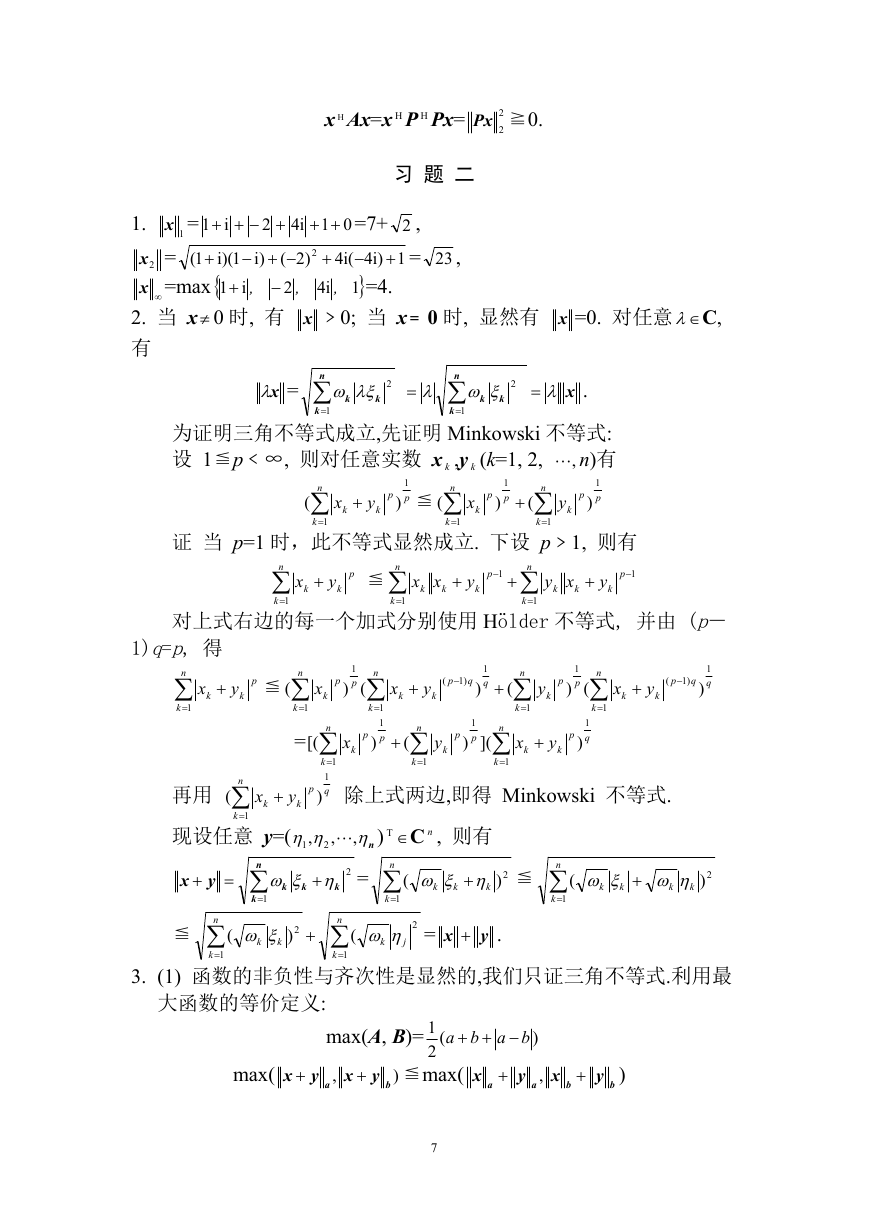 x^H Ax=x^H P^H Px=‖Px‖₂² ≧0.
习 题 二
1. ‖x‖₁=|1+i|+|−2|+|4i|+1+0=7+√2 ,
‖x₂‖=√((1+i)(1−i)+(−2)²+4i(−4i)+1)=√23 ,
‖x‖_∞=max{|1+i|, |−2|, |4i|, 1}=4.
2. 当 x≠0 时, 有 ‖x‖﹥0; 当 x= 0 时, 显然有 ‖x‖=0. 对任意λ∈C,
有
‖λx‖=√(∑_{k=1}^n ω_k|λξ_k|²) =|λ|√(∑_{k=1}^n ω_k|ξ_k|²) =|λ|‖x‖.
为证明三角不等式成立,先证明 Minkowski 不等式:
设 1≦p﹤∞, 则对任意实数 x_k ,y_k (k=1, 2, ⋯,n)有
(∑_{k=1}^n |x_k+y_k|^p)^{1/p} ≦ (∑_{k=1}^n |x_k|^p)^{1/p}+(∑_{k=1}^n |y_k|^p)^{1/p}
证 当 p=1 时，此不等式显然成立. 下设 p﹥1, 则有
∑_{k=1}^n |x_k+y_k|^p ≦ ∑_{k=1}^n |x_k||x_k+y_k|^{p−1}+∑_{k=1}^n |y_k||x_k+y_k|^{p−1}
对上式右边的每一个加式分别使用 Hölder 不等式, 并由 (p－
1)q=p, 得
∑_{k=1}^n |x_k+y_k|^p ≦ (∑_{k=1}^n |x_k|^p)^{1/p}(∑_{k=1}^n |x_k+y_k|^{(p−1)q})^{1/q}+(∑_{k=1}^n |y_k|^p)^{1/p}(∑_{k=1}^n |x_k+y_k|^{(p−1)q})^{1/q}
=[(∑_{k=1}^n |x_k|^p)^{1/p}+(∑_{k=1}^n |y_k|^p)^{1/p}](∑_{k=1}^n |x_k+y_k|^p)^{1/q}
再用 (∑_{k=1}^n |x_k+y_k|^p)^{1/q} 除上式两边,即得 Minkowski 不等式.
现设任意 y=(η₁,η₂,⋯,η_n)^T∈C^n, 则有
‖x+y‖=√(∑_{k=1}^n ω_k|ξ_k+η_k|²)=√(∑_{k=1}^n (√ω_k|ξ_k+η_k|)²) ≦ √(∑_{k=1}^n (√ω_k|ξ_k|+√ω_k|η_k|)²)
≦ √(∑_{k=1}^n (√ω_k|ξ_k|)²)+√(∑_{k=1}^n (√ω_k|η_j|²)=‖x‖+‖y‖.
3. (1) 函数的非负性与齐次性是显然的,我们只证三角不等式.利用最
大函数的等价定义:
max(A, B)=1/2(a+b+|a−b|)
max(‖x+y‖_a,‖x+y‖_b)≦max(‖x‖_a+‖y‖_a,‖x‖_b+‖y‖_b)
7